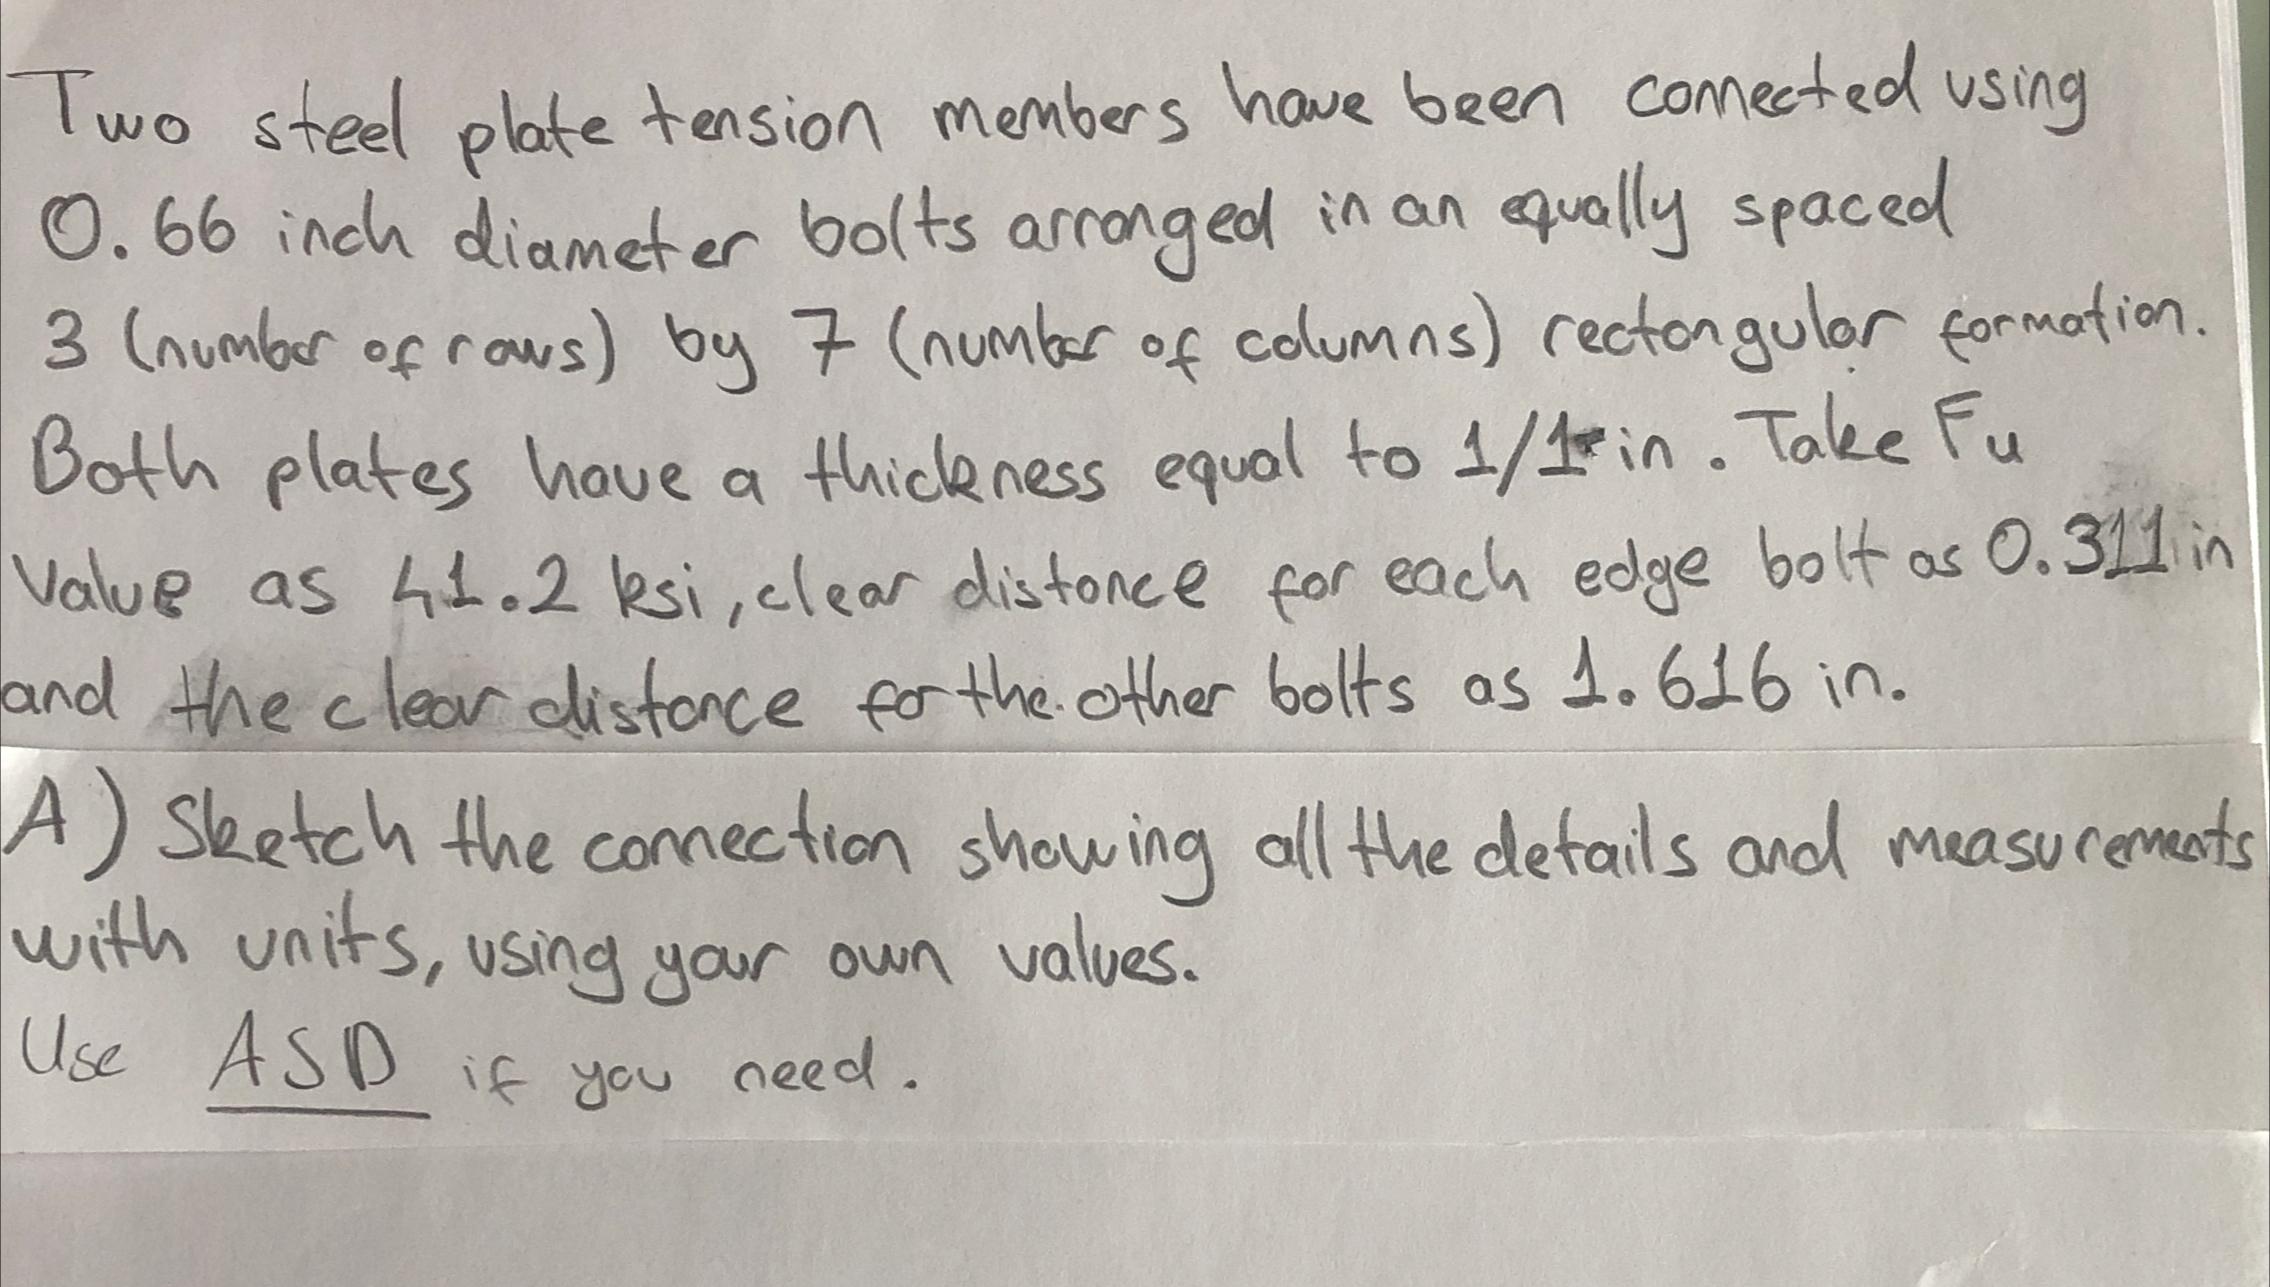 Two steel plate tension members have been connected using
0.66 inch diameter bolts arranged in an equally spaced
3 (number of rows) by 7 (number of columns) rectangular formation.
Both plates have a thickness equal to 1/1 in. Take Fu
Value as 41.2 ksi, clear distance for each edge bolt as 0.311 in
and the clear distance for the other bolts as 1.616 in.
A) Sketch the connection showing all the details and measurements
with units, using your own values.
Use ASD if you need.